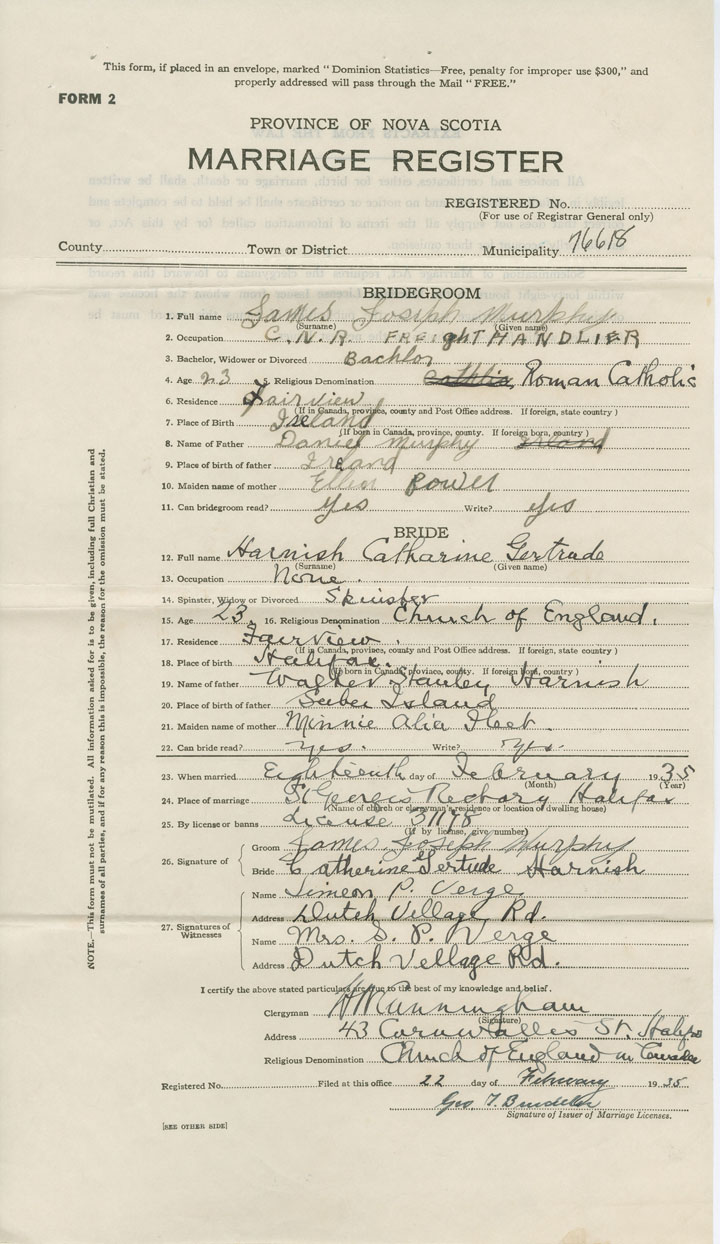 This form, if placed in an envelope, marked "Dominion Statistics—Free, penalty for improper use $300," and
properly addressed will pass through the Mail "FREE."
FORM 2
PROVINCE OF NOVA SCOTIA
MARRIAGE REGISTER
REGISTERED No.
(For use of Registrar General only)
County Town or District Municipality 76618
BRIDEGROOM
1. Full name James Joseph Murphy
(Surname) (Given name)
2. Occupation C.N.R. FREIGHT HANDLIER
3. Bachelor, Widower or Divorced Bachlor
4. Age 23 5. Religious Denomination Roman Catholic
6. Residence Fairview
(If in Canada, province, county and Post Office address. If foreign, state country)
7. Place of Birth Ireland
(If born in Canada, province, county. If foreign born, country)
8. Name of Father Daniel Murphy Irland
9. Place of birth of father Ireland
10. Maiden name of mother Ellen Power
11. Can bridegroom read? yes Write? yes
BRIDE
12. Full name Harnish Catharine Gertrude
(Surname) (Given name)
13. Occupation None.
14. Spinster, Widow or Divorced Spinster
15. Age 23. 16. Religious Denomination Church of England.
17. Residence Fairview.
(If in Canada, province, county and Post Office address. If foreign, state country)
18. Place of birth Halifax.
(If born in Canada, province, county. If foreign born, country)
19. Name of father Walter Stanley Harnish
20. Place of birth of father Island
21. Maiden name of mother Minnie Fleet.
22. Can bride read? Yes. Write? Yes.
23. When married Eighteenth day of February 1935
(Month) (Year)
24. Place of marriage St Georges Rectory Halifax
(Name of church or clergyman's residence or location of dwelling house)
25. By license or banns License 31198
(If by license, give number)
26. Signature of
Groom James Joseph Murphy
Bride Catherine Gertude Harnish
27. Signatures of Witnesses
Name Simeon P. Verge
Address Dutch Village Rd.
Name Mrs. S. P. Verge
Address Dutch Vellage Rd.
I certify the above stated particulars are true to the best of my knowledge and belief.
Clergyman Cunningham
(Signature)
Address 43 Cornwallis St. Halifax
Religious Denomination Church of England in Canada
Registered No. Filed at this office 22 day of February 1935
Geo. T.
Signature of Issuer of Marriage Licenses.
[SEE OTHER SIDE]
NOTE.—This form must not be mutilated. All information asked for is to be given, including full Christian and
surnames of all parties, and if for any reason this is impossible, the reason for the omission must be stated.